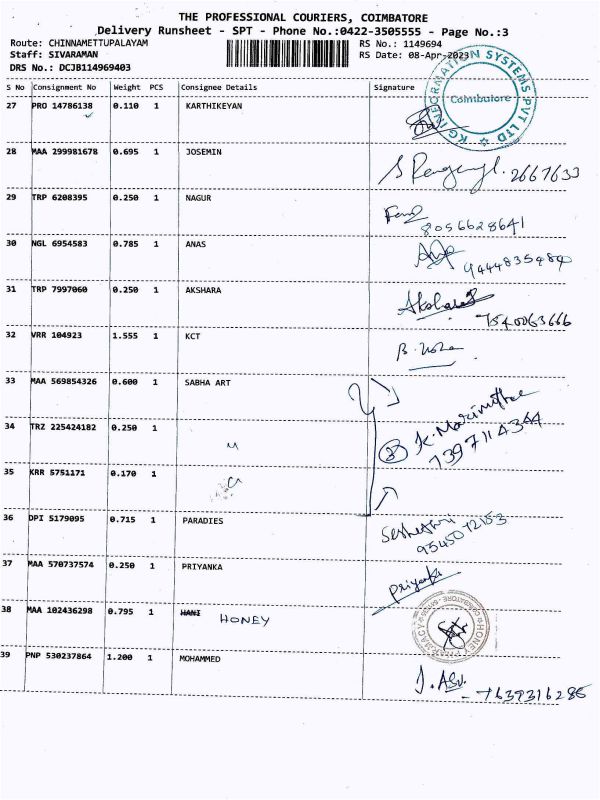 THE PROFESSIONAL COURIERS, COIMBATORE
Delivery Runsheet - SPT - Phone No.:0422-3505555 - Page No.:3
Route: CHINNAMETTUPALAYAM
RS No.: 1149694
Staff: SIVARAMAN
RS Date: 08-Apr-2023
DRS No.: DCJB114969403
S No Consignment No Weight PCS Consignee Details Signature
KG INFORMATION SYSTEMS PVT LTD
Coimbatore
27 PRO 14786138 0.110 1 KARTHIKEYAN
28 MAA 299981678 0.695 1 JOSEMIN
2667633
29 TRP 6208395 0.250 1 NAGUR
8056628641
30 NGL 6954583 0.785 1 ANAS
31 TRP 7997060 0.250 1 AKSHARA
Akshara
7540063666
32 VRR 104923 1.555 1 KCT
33 MAA 569854326 0.600 1 SABHA ART
34 TRZ 225424182 0.250 1
K. Marimuthu
35 KRR 5751171 0.170 1
36 DPI 5179095 0.715 1 PARADIES
37 MAA 570737574 0.250 1 PRIYANKA
Priyanka
38 MAA 102436298 0.795 1 HANI HONEY
HONEY PHARMACY
39 PNP 530237864 1.200 1 MOHAMMED
7639316285